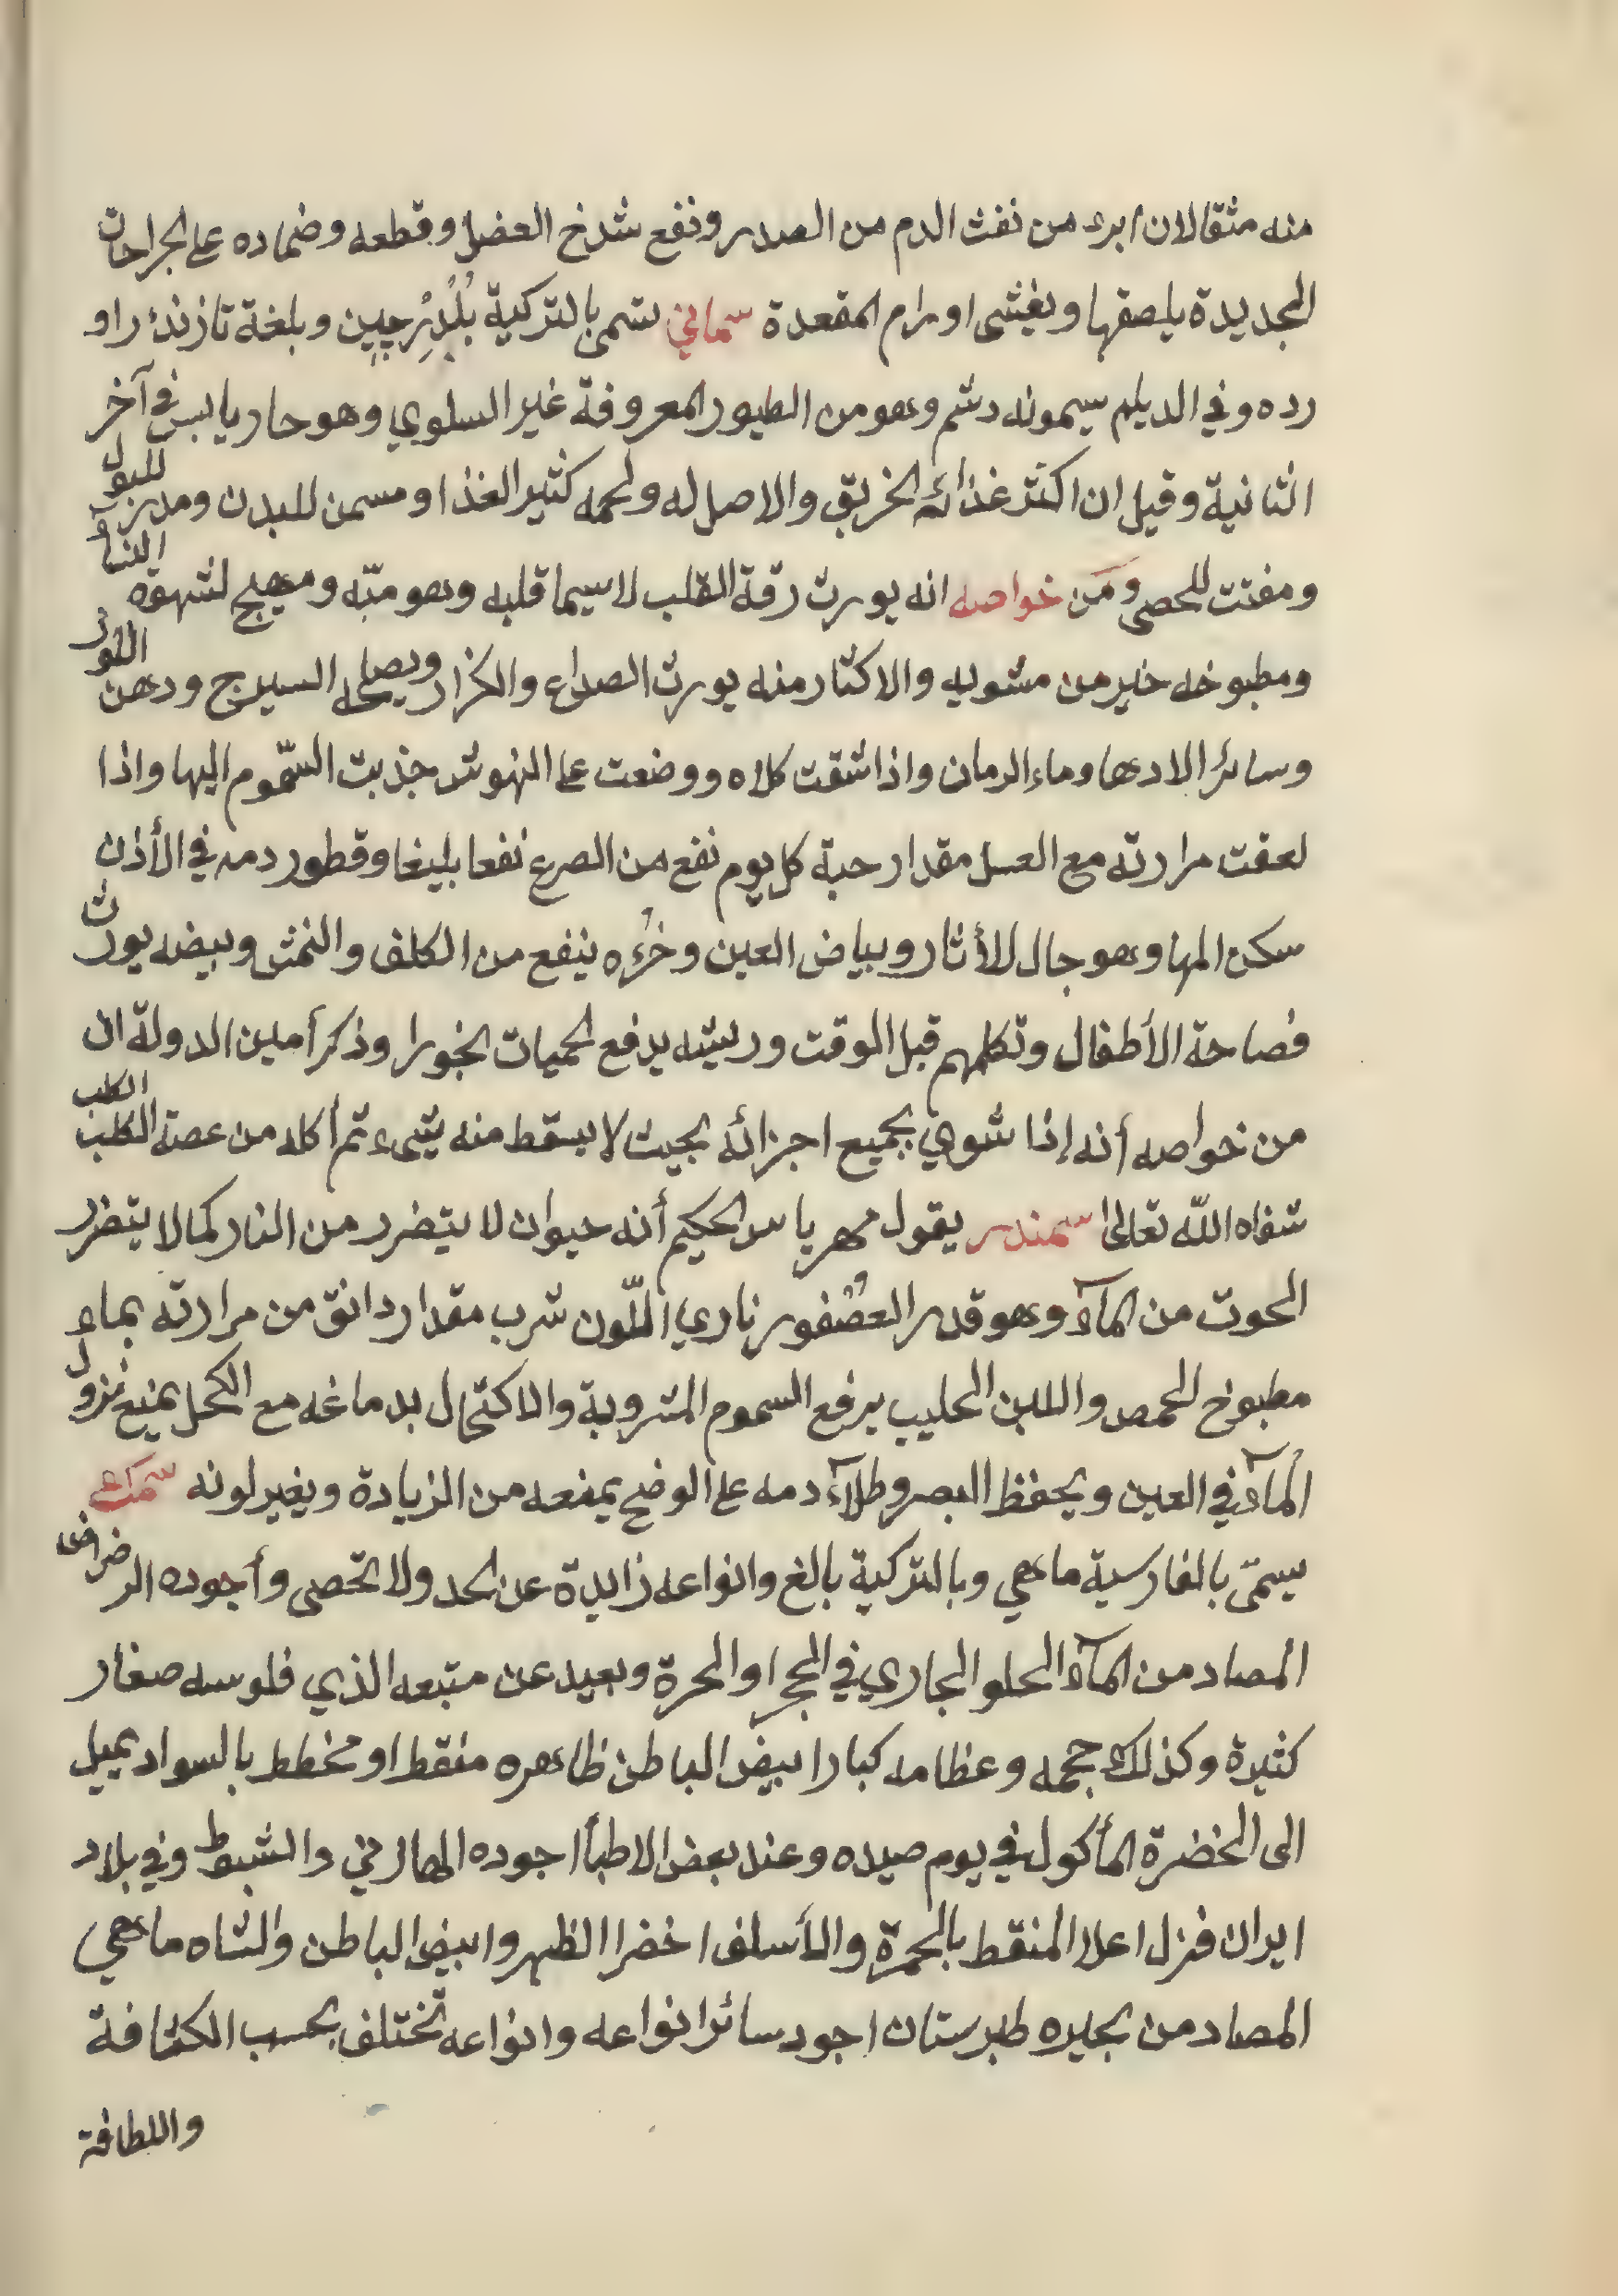 منه مثقالان ابرء من نفث الدم من الصدر ونفع شدخ العضل وقطعه وضماده على الجراحات
الجديدة يلصقها ويغشى اورام المقعدة سماني يسمى بالتركية بُلْدِرْجِين وبلغة
رده وفي الديلم يسمونه دشم وهو من الطيور المعروفة غير السلوي وهو حار يابس في آخر
الثانية وقيل ان اكثر غذائه الخربق والاصل له ولحمه كثير الغذا ومسمن للبدن ومدر للبول
ومفتت للحصى ومن خواصه انه يورث رقة القلب لا سيما قلبه وهو منبّه ومهيج لشهوة النسآء
ومطبوخه خير من مشويه والاكثار منه يورث الصداع والكزاز ويصلحه السيرج ودهن اللوز
وسائر الادها وماء الرمان واذا شقت كلاه ووضعت على النهوش جذبت السّموم اليها واذا
لعقت مرارته مع العسل مقدار حبة كل يوم نفع من الصرع نفعا بليغا وقطور دمه في الأذن
سكن المها وهو جال للأثار وبياض العين وخُرْءه ينفع من الكلف والنمش وبيضه يورث
فصاحة الأطفال وتكلمهم قبل الوقت وريشه يدفع الحميات بخورا وذكر أمين الدولة ان
من خواصه أنه إذا شوي بجميع اجزائه بحيث لا يسقط منه شيء ثم أكله من عضة الكلب الكلب
شفاه اللّه تعالى سمندر يقول مهرياس الحكيم أنه حيوان لا يتضرر من النار كما لا يتضرر
الحوت من المآء وهو قدر العصُفُور ناري اللّون شرب مقدار دانق من مرارته بماء
مطبوخ الحمص واللبن الحليب يرفع السموم المشروبة والاكتحال بدماغه مع الكحل يمنع نزول
المآء في العين ويحفظ البصر وطلآء دمه على الوضح يمنعه من الزيادة ويغير لونه سمك
يسمّى بالفارسية ماهي وبالتركية بالغ وانواعه زايدة عن الحد ولا تحصى وأجوده الرضراض
المصاد من المآء الحلو الجاري في المجرا والمحرة وبعيد عن منبعه الذي فلوسه صغار
كثيرة وكذلك حجمه وعظامه كبارا بيض الباطن ظاهره منقط او مخطط بالسواد يميل
الى الخضرة المأكول في يوم صيده وعند بعض الاطبأ اجوده المهازني والشبوط وفي بلاد
ايران قزل اعلا المنقط بالحمرة والأسلف اخضرا الظهر وابيض الباطن والشاه ماهي
المصاد من بحيره طبرستان اجود سائر انواعه وانواعه تختلف بحسب الكثافة
واللطافة